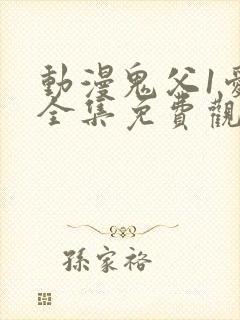 動漫鬼父1
全集免費觀
孫家裕